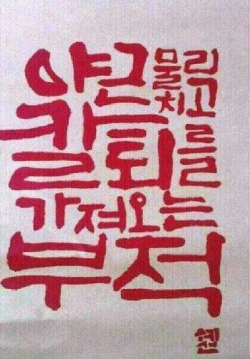 야근 물리치고
칼퇴를
가져오는
부적
쉔